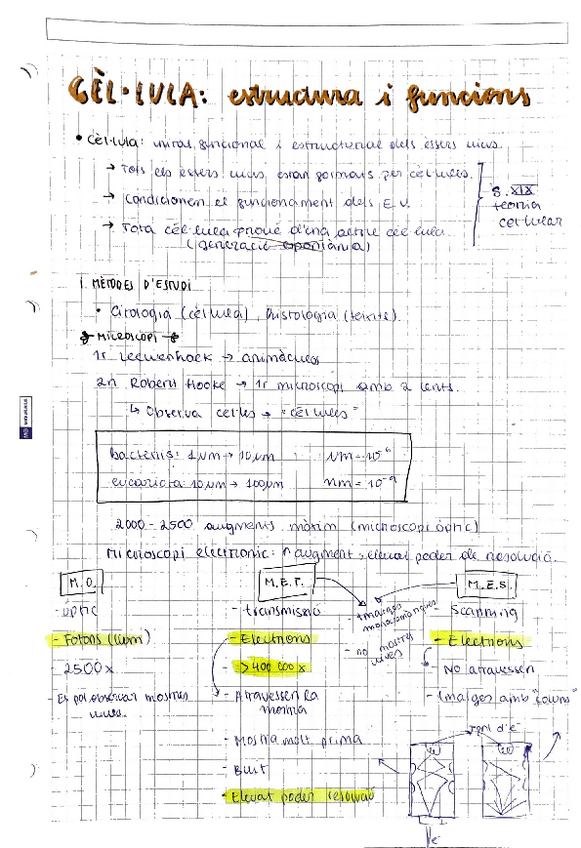 CÈL·LULA: estructura i funcions
• Cèl·lula: unitat funcional i estructural dels essers vius.
→ Tots els essers vius estan formats per cèl·lules.
→ Condicionen el funcionament dels E.V.
→ Tota cèl·lula prové d'una altre cèl·lula.
(generació espontània)
S. XIX
teoria
cel·lular
1. MÈTODES D'ESTUDI
• Citologia (cèl·lula), Histologia (teixits).
MICROSCOPI
1r Leewenhock → animàculs
2n Robert Hooke → 1r microscopi amb 2 lents.
↳ Observa cel·les → "cèl·lules"
bacteris: 1µm → 10µm µm = 10⁻⁶
eucariota 10µm → 100µm nm = 10⁻⁹
2000-2500 augments màxim (microscopi òptic)
Microscopi electrònic: ↑ augment, elevat poder de resolució.
M.O. M.E.T. M.E.S.
- òptic
- Fotons (llum)
- 2500x
- Es pot observar mostres
vives.
- transmissió
- Electrons
- >400 000x
- Atravessen la
mostra
- Mostra molt prima
- Buit
- Elevat poder resolució
- Imatges
monocromàtiques
- no mostres
vives
- Scanning
- Electrons
- No atravessen
- Imatges amb "
d'e⁻
e⁻